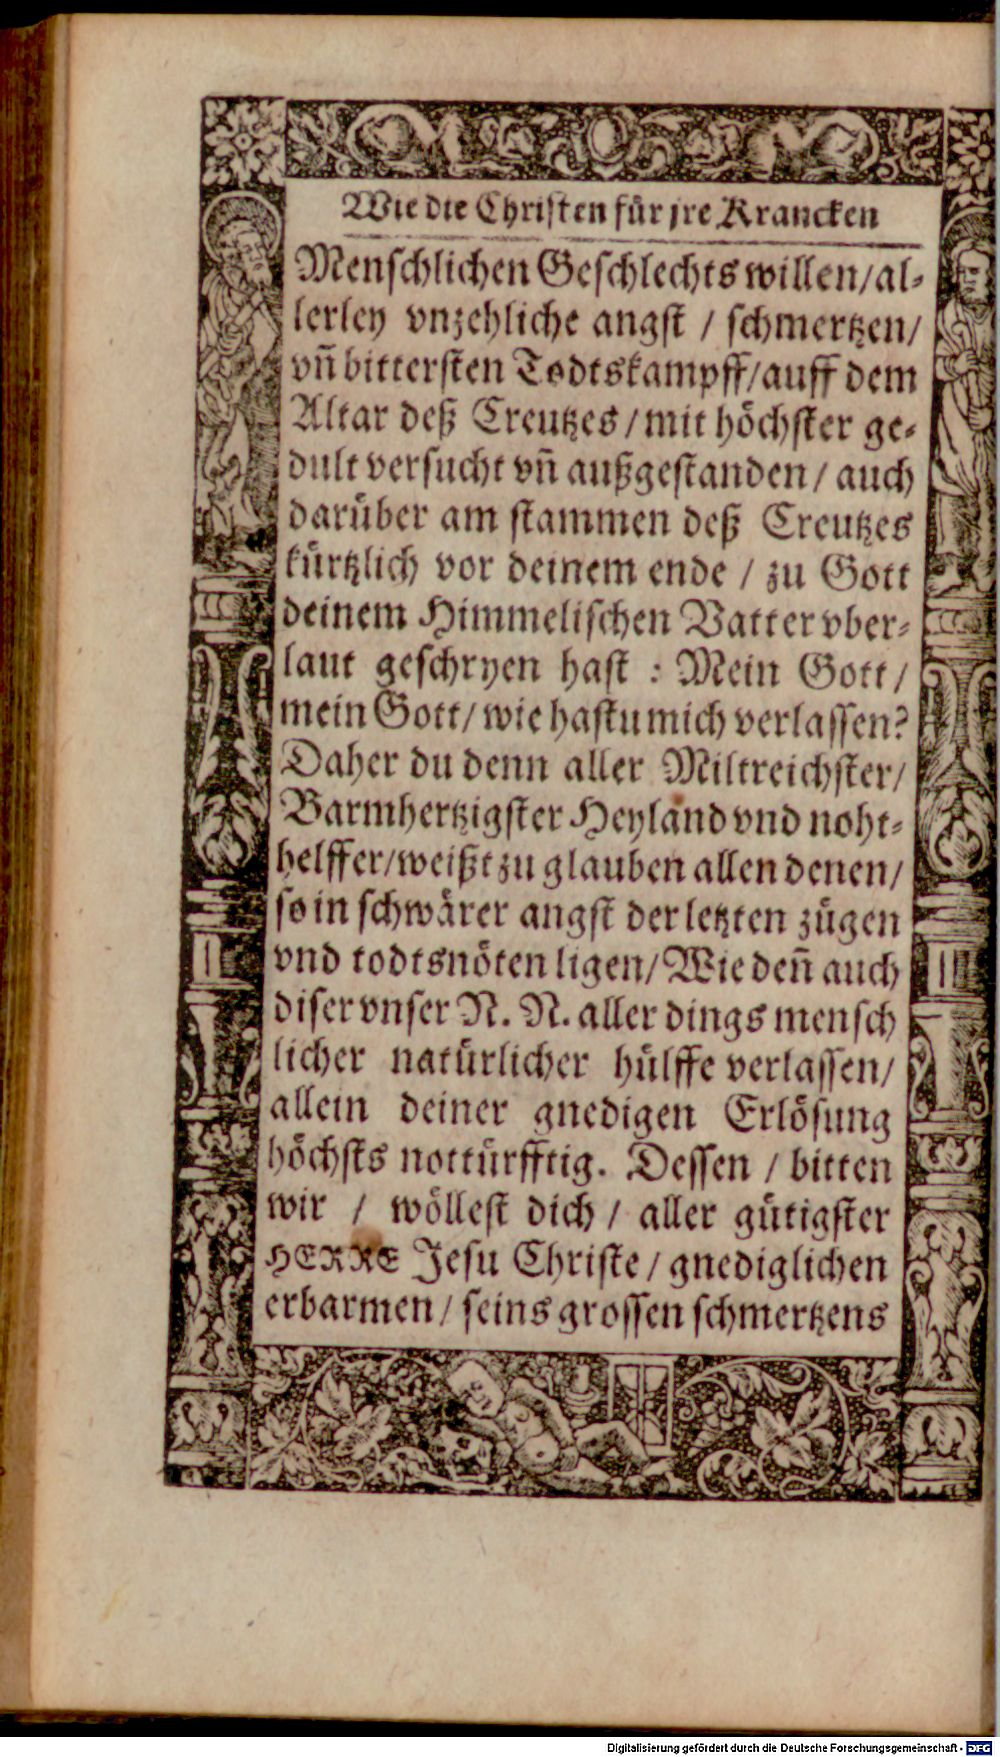 Wie die Christen für jre Krancken
Menschlichen Geschlechts willen/al⸗
lerley vnzehliche angst / schmertzen/
vn̄ bittersten Todtskampff/auff dem
Altar deß Creutzes / mit höchster ge⸗
dult versucht vn̄ außgestanden / auch
darüber am stammen deß Creutzes
kürtzlich vor deinem ende / zu Gott
deinem Himmelischen Vatter vber⸗
laut geschryen hast : Mein Gott /
mein Gott/ wie hastu mich verlassen?
Daher du denn aller Miltreichster/
Barmhertzigster Heyland vnd noht⸗
helffer/weißt zu glauben allen denen/
so in schwärer angst der letzten zügen
vnd todtsnöten ligen/ Wie den̄ auch
diser vnser N. N. aller dings mensch
licher natürlicher hülffe verlassen/
allein deiner gnedigen Erlösung
höchsts nottürfftig. Dessen / bitten
wir / wöllest dich / aller gütigster
HERRE Jesu Christe / gnediglichen
erbarmen/ seins grossen schmertzens
Digitalisierung gefördert durch die Deutsche Forschungsgemeinschaft - DFG